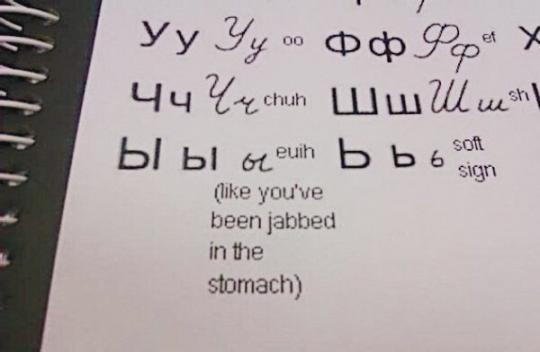 У у У у oo Ф ф Ф ф ef
Ч ч Ч ч chuh Ш ш Ш ш sh
Ы ы ы euih Ь ь ь soft sign
(like you've
been jabbed
in the
stomach)